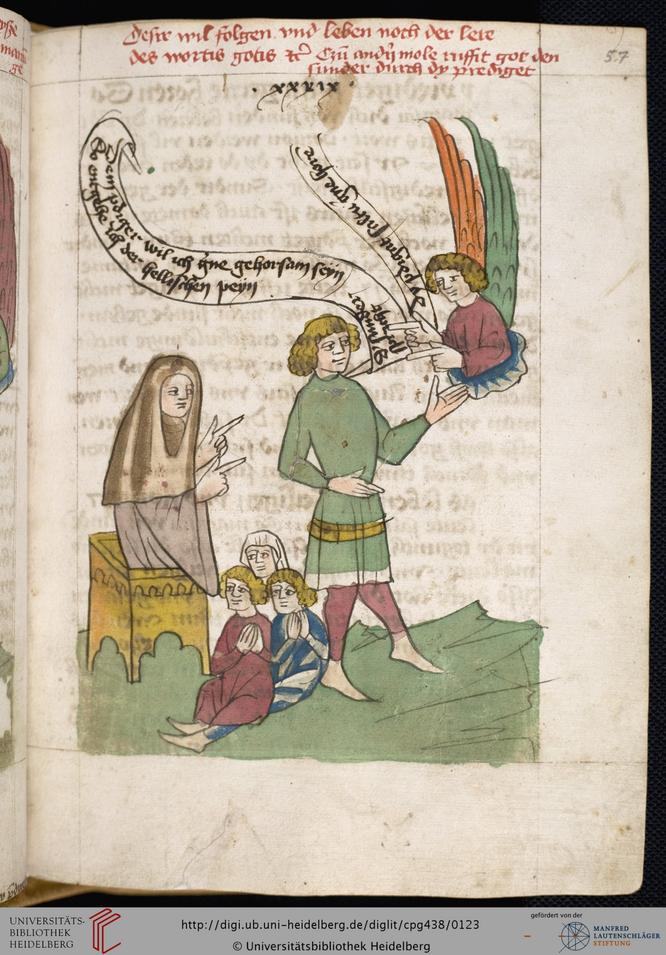 deser wil folgen vnd leben noch der lere
des wortis gotis etc̃ Czũ andn̄ mole ruffit got den
sunder durch dy prediget
57
· xxxix ·
Dem pdiger wil ich gͤne gehorsam seyn
So entgehe ich der hellischen peyn
Du sunder
dy prediget saltu gͤne hore
UNIVERSITÄTS-
BIBLIOTHEK
HEIDELBERG
http://digi.ub.uni-heidelberg.de/diglit/cpg438/0123
© Universitätsbibliothek Heidelberg
gefördert von der
MANFRED
LAUTENSCHLÄGER
STIFTUNG